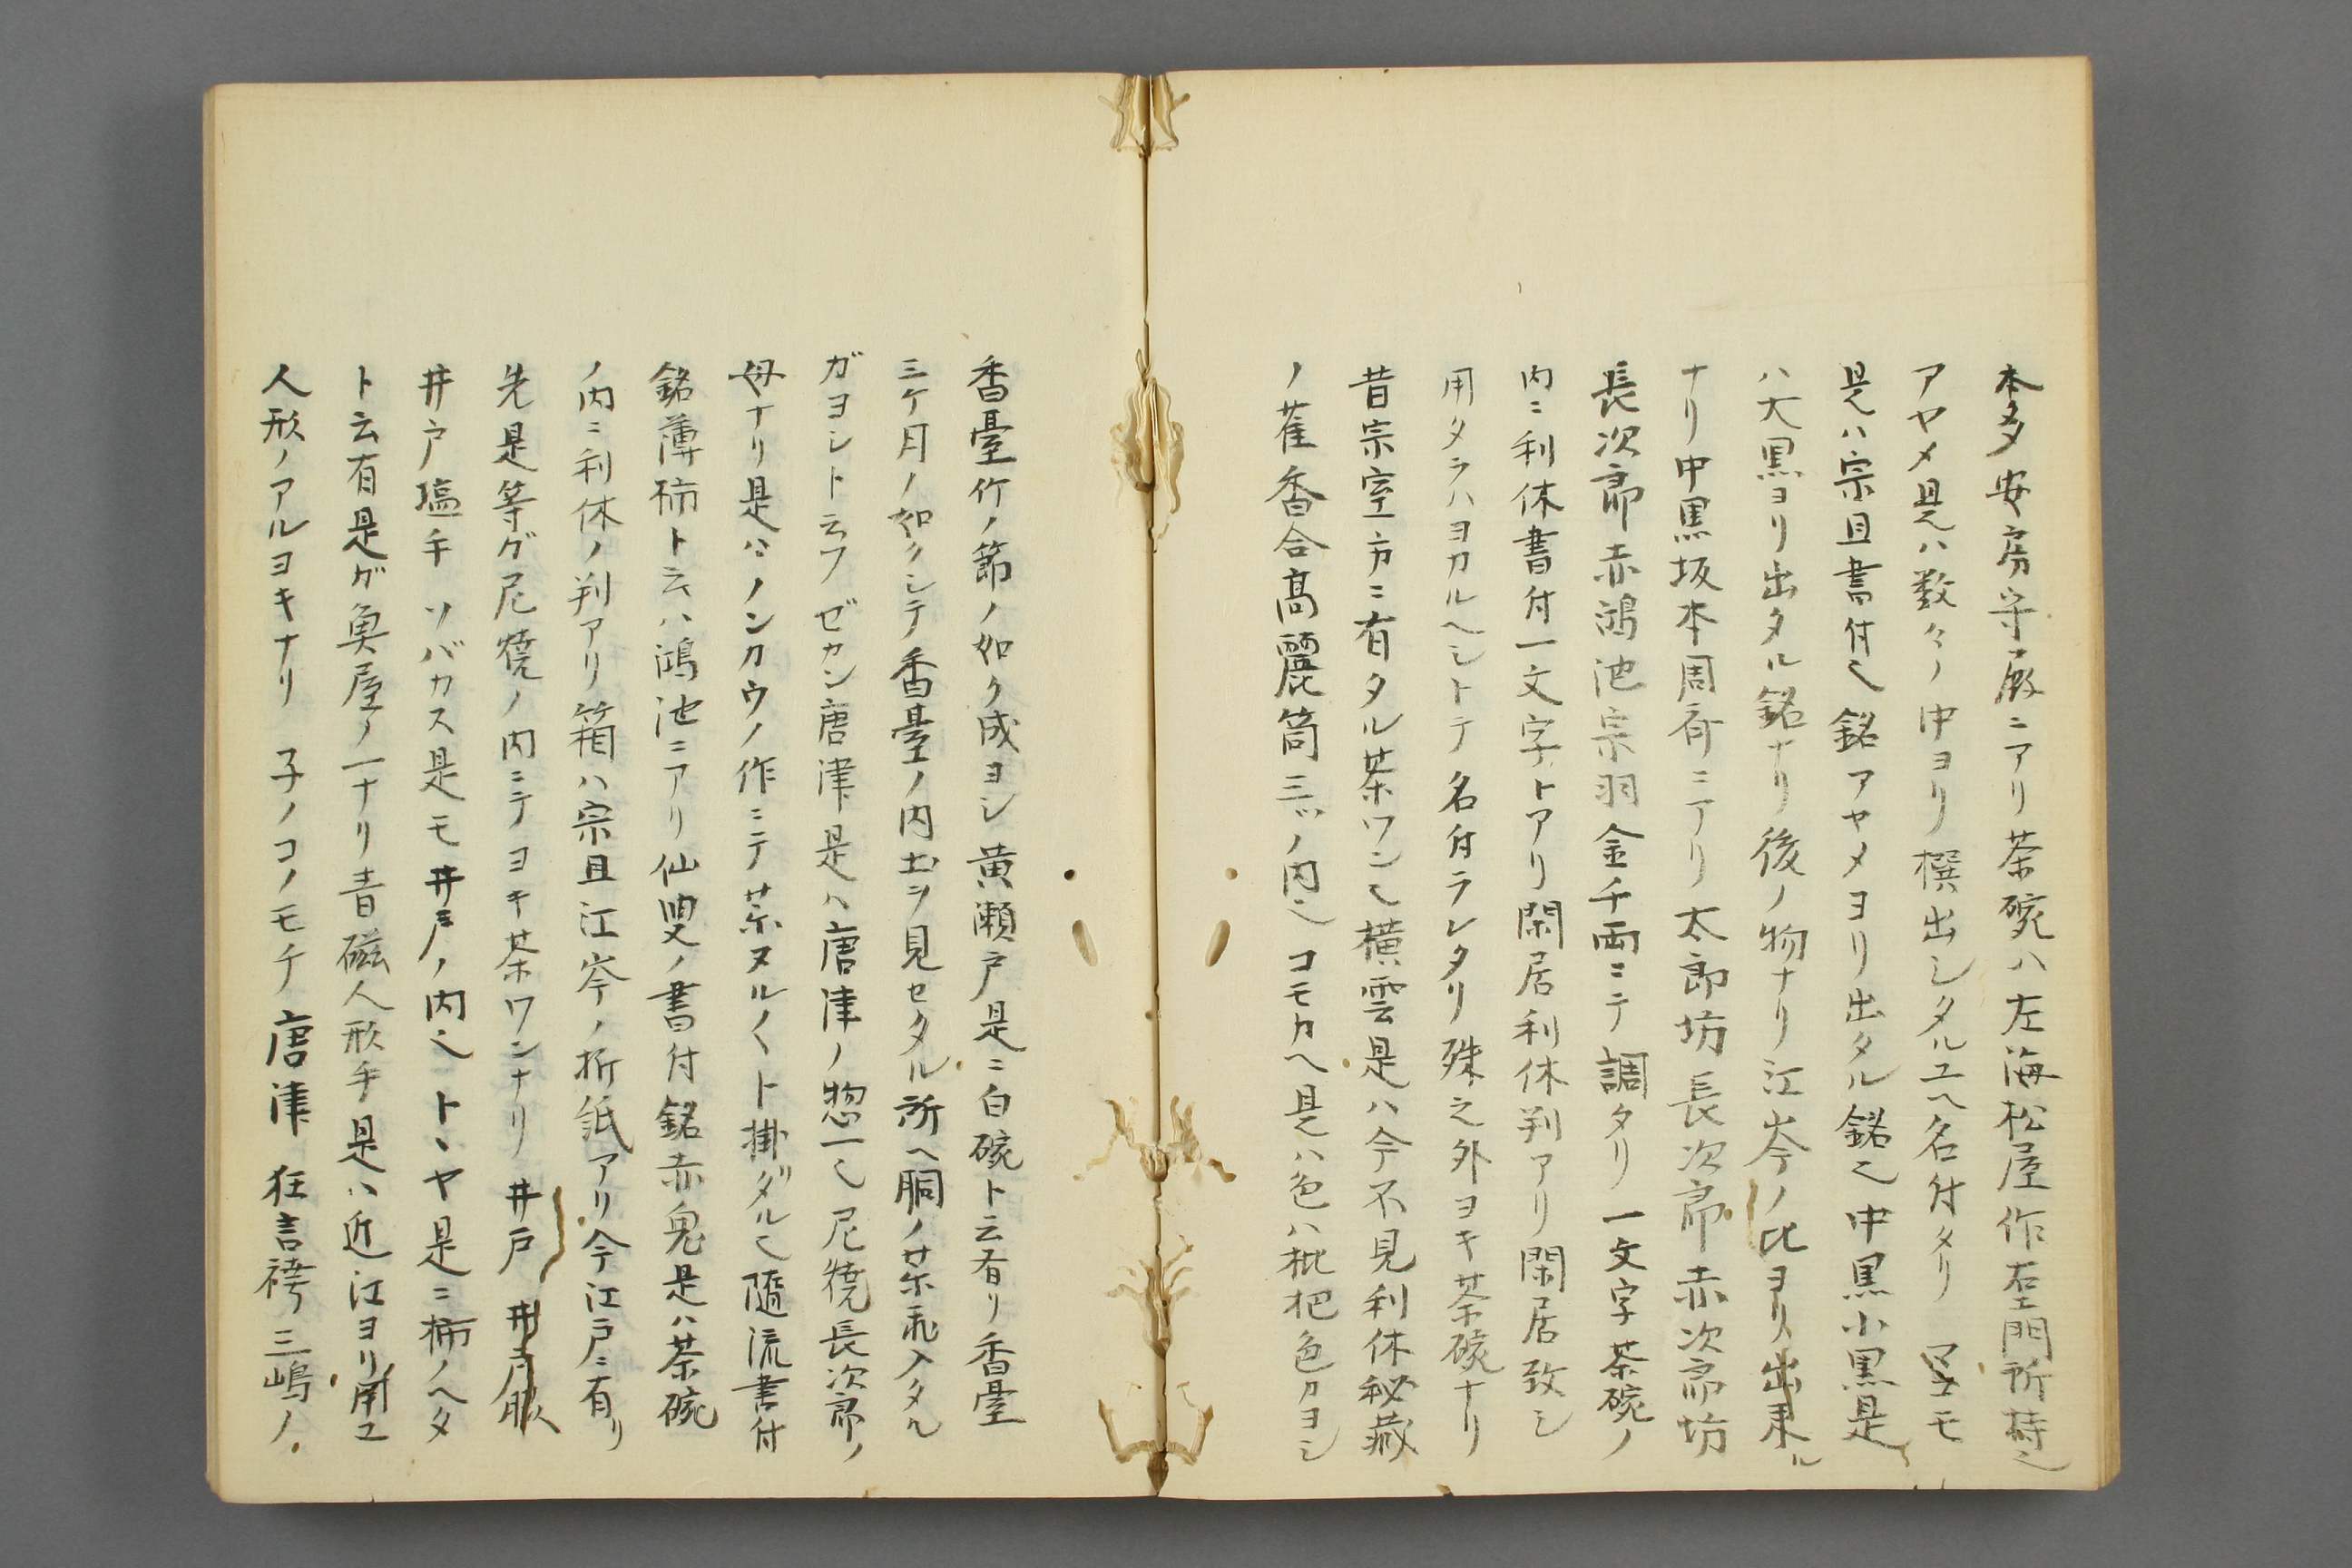 本多安房守殿ニアリ茶碗ハ左海松屋作左ヱ門所持也
アヤメ是ハ数々ノ中ヨリ撰出シタルユヘ名付タリ マユモ
是ハ宗旦書付也銘アヤメヨリ出タル銘也中黒小黒是
ハ大黒ヨリ出タル銘ナリ後ノ物ナリ江岑ノ比ヨリ出来ル
ナリ中黒坂本周斎ニアリ太郎坊長次郎赤次郎坊
長次郎赤鴻池宗羽金千両ニテ調タリ一文字茶碗ノ
内ニ利休書付一文字トアリ閑居利休判アリ閑居致シ
用タラハヨカルヘシトテ名付ランタリ殊之外ヨキ茶碗ナリ
昔宗室方ニ有タル茶ワン也横雲是ハ今不見利休秘蔵
ノ雀香合高麗筒三ツノ内也コモカヘ是ハ色ハ枇杷色カヨシ
香臺竹ノ節ノ如ク成ヨシ黄瀬戸是ニ白碗ト云有リ香臺
三ケ月ノ如クシテ香臺ノ内土ヲ見セタル所ヘ胴ノ茶乖入タル
ガヨシト云フゼカン唐津是ハ唐津ノ惣一也尼焼長次郎ノ
母ナリ是ニノンカウノ作ニテ茶ヌル〱ト掛ダル也隨流書付
銘薄柿ト云ハ鴻池ニアリ仙叟ノ書付銘赤鬼是ハ茶碗
ノ内ニ利休ノ判アリ箱ハ宗旦江岑ノ折紙アリ今江戸ニ有リ
先是等ガ尼焼ノ内ニテヨキ茶ワンナリ井戸 井戸脇
井戸塩手 ソバカス是モ井戸ノ内也トヽヤ是ニ柿ノヘタ
ト云有是ガ魚屋ノ一ナリ青磁人形手是ハ近江ヨリ用ユ
人形ノアルヨキナリ 子ノコノモチ 唐津 狂言袴 三嶋ノ